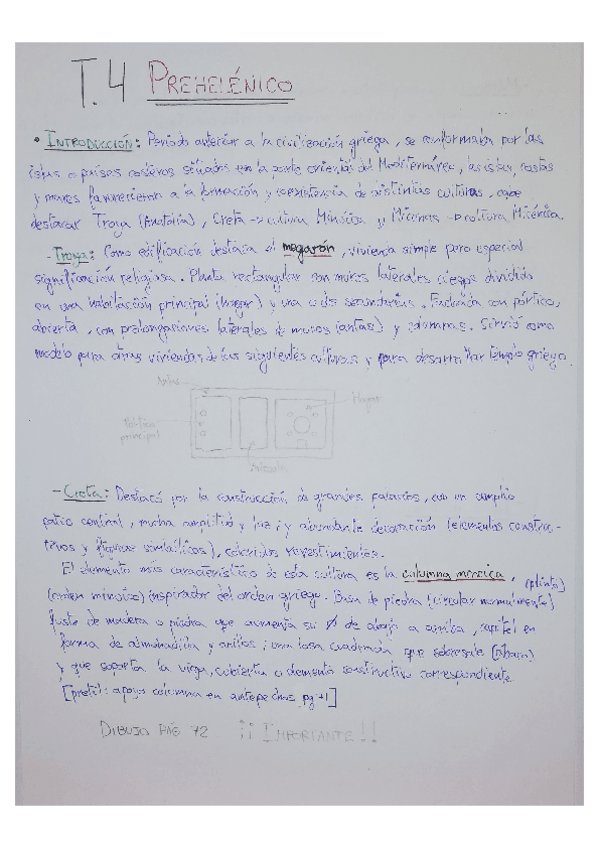 T.4 PREHELÉNICO
• INTRODUCCIÓN: Periodo anterior a la civilización griega, se conformaba por las
islas o países costeros situados en la parte oriental del Mediterráneo, las islas, costas
y mares favorecieron a la formación y coexistencia de distintas culturas, cabe
destacar Troya (Anatolia), Creta -> cultura Minoica y Micenas -> cultura Micénica.
- Troya: Como edificación destaca el megarón, vivienda simple para especial
significación religiosa. Planta rectangular con muros laterales ciegos dividido
en una habitación principal (hogar) y una o dos secundarias. Fachada con pórtico,
abierta, con prolongaciones laterales de muros (antas) y columnas. Sirvió como
modelo para otras viviendas de las siguientes culturas y para desarrollar templo griego.
Antas
Hogar
Pórtico
principal
- Creta: Destacó por la construcción de grandes palacios, con un amplio
patio central, mucha amplitud y luz, y abundante decoración (elementos construc-
tivos y figuras simbólicas), coloridos revestimientos.
El elemento más característico de esta cultura es la columna
(orden minoico) inspirador del orden griego. Basa de piedra (circular normalmente) (plinto)
fuste de madera o piedra que aumenta su Ø de abajo a arriba, capitel en
forma de almohadilla y anillos; con losa cuadrada que sobresale (ábaco)
y que soporta la viga, cubierta o elemento constructivo correspondiente
[pretil: apoyo columna en antepechos pg 71]
DIBUJO PÁG 72 ¡¡ IMPORTANTE !!